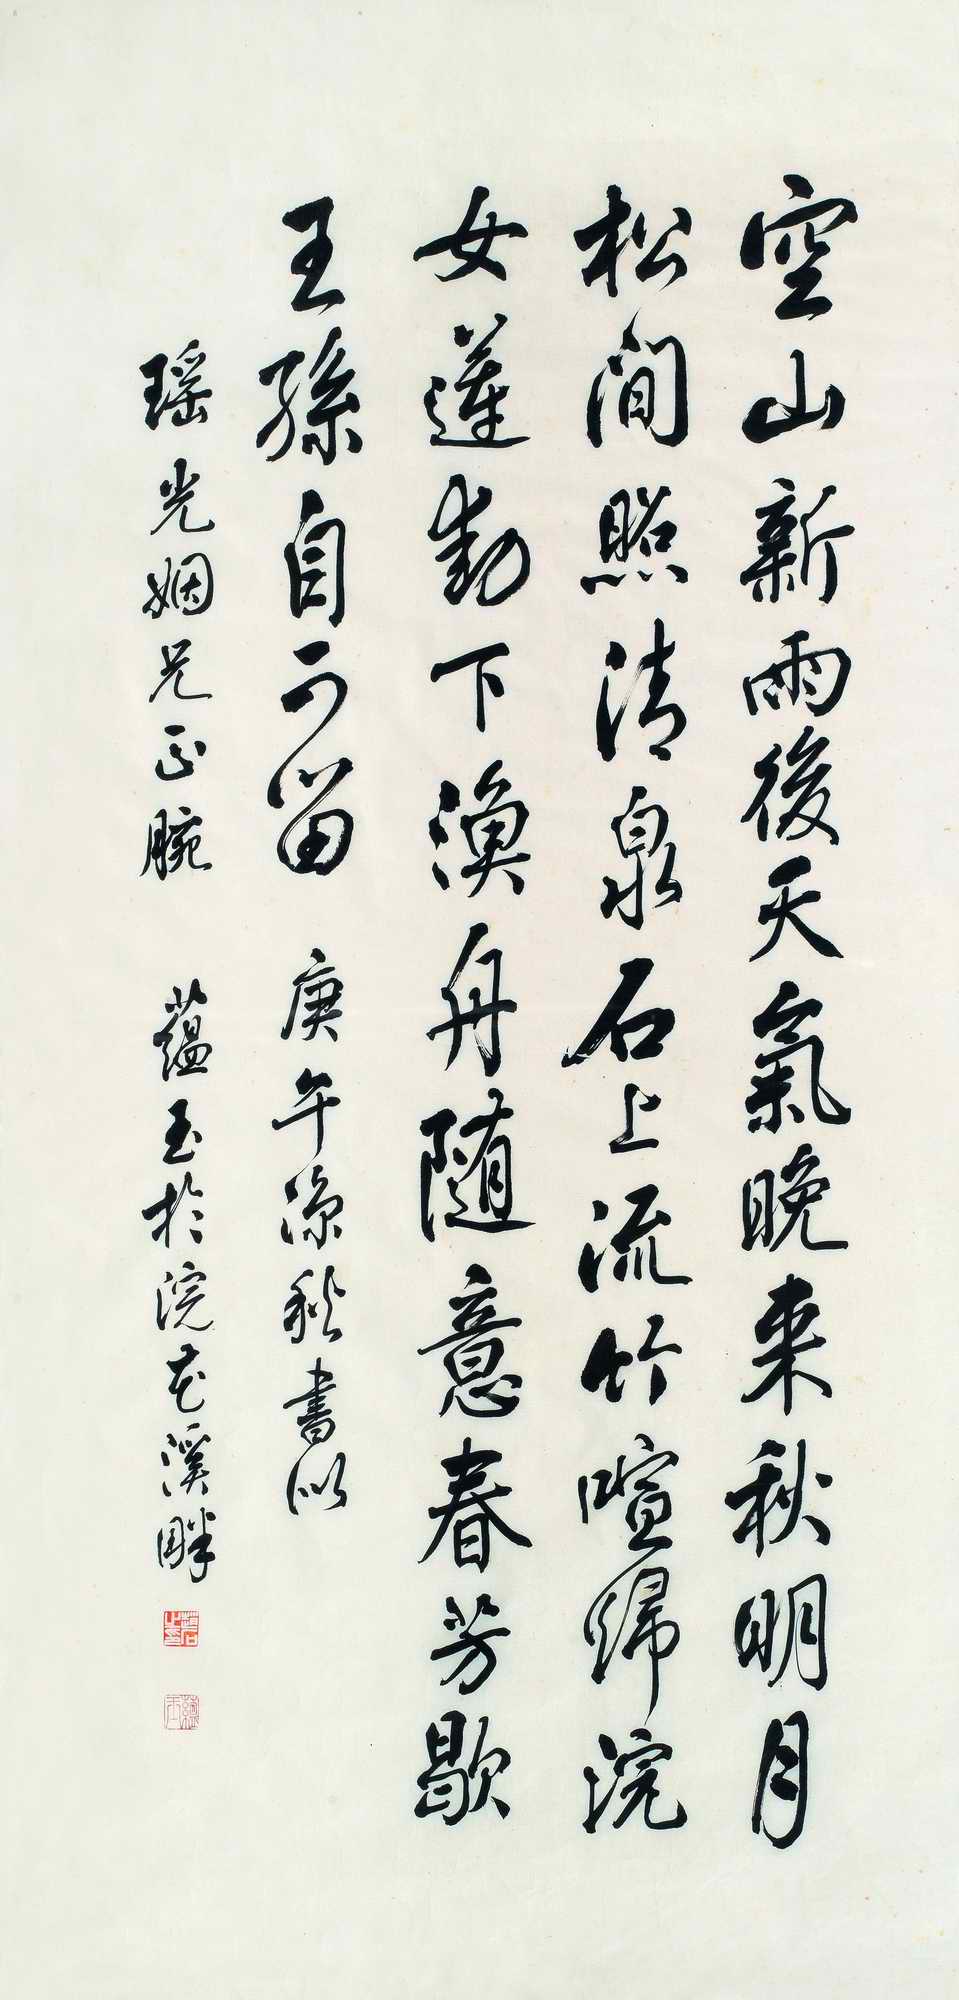 空山新雨後天氣晚来秋明月
松間照清泉石上流竹喧歸浣
女蓮動下漁舟随意春芳歇
王孫自可留 庚午涼秋書以
瑶光姻兄正腕 蘊玉於浣花溪畔